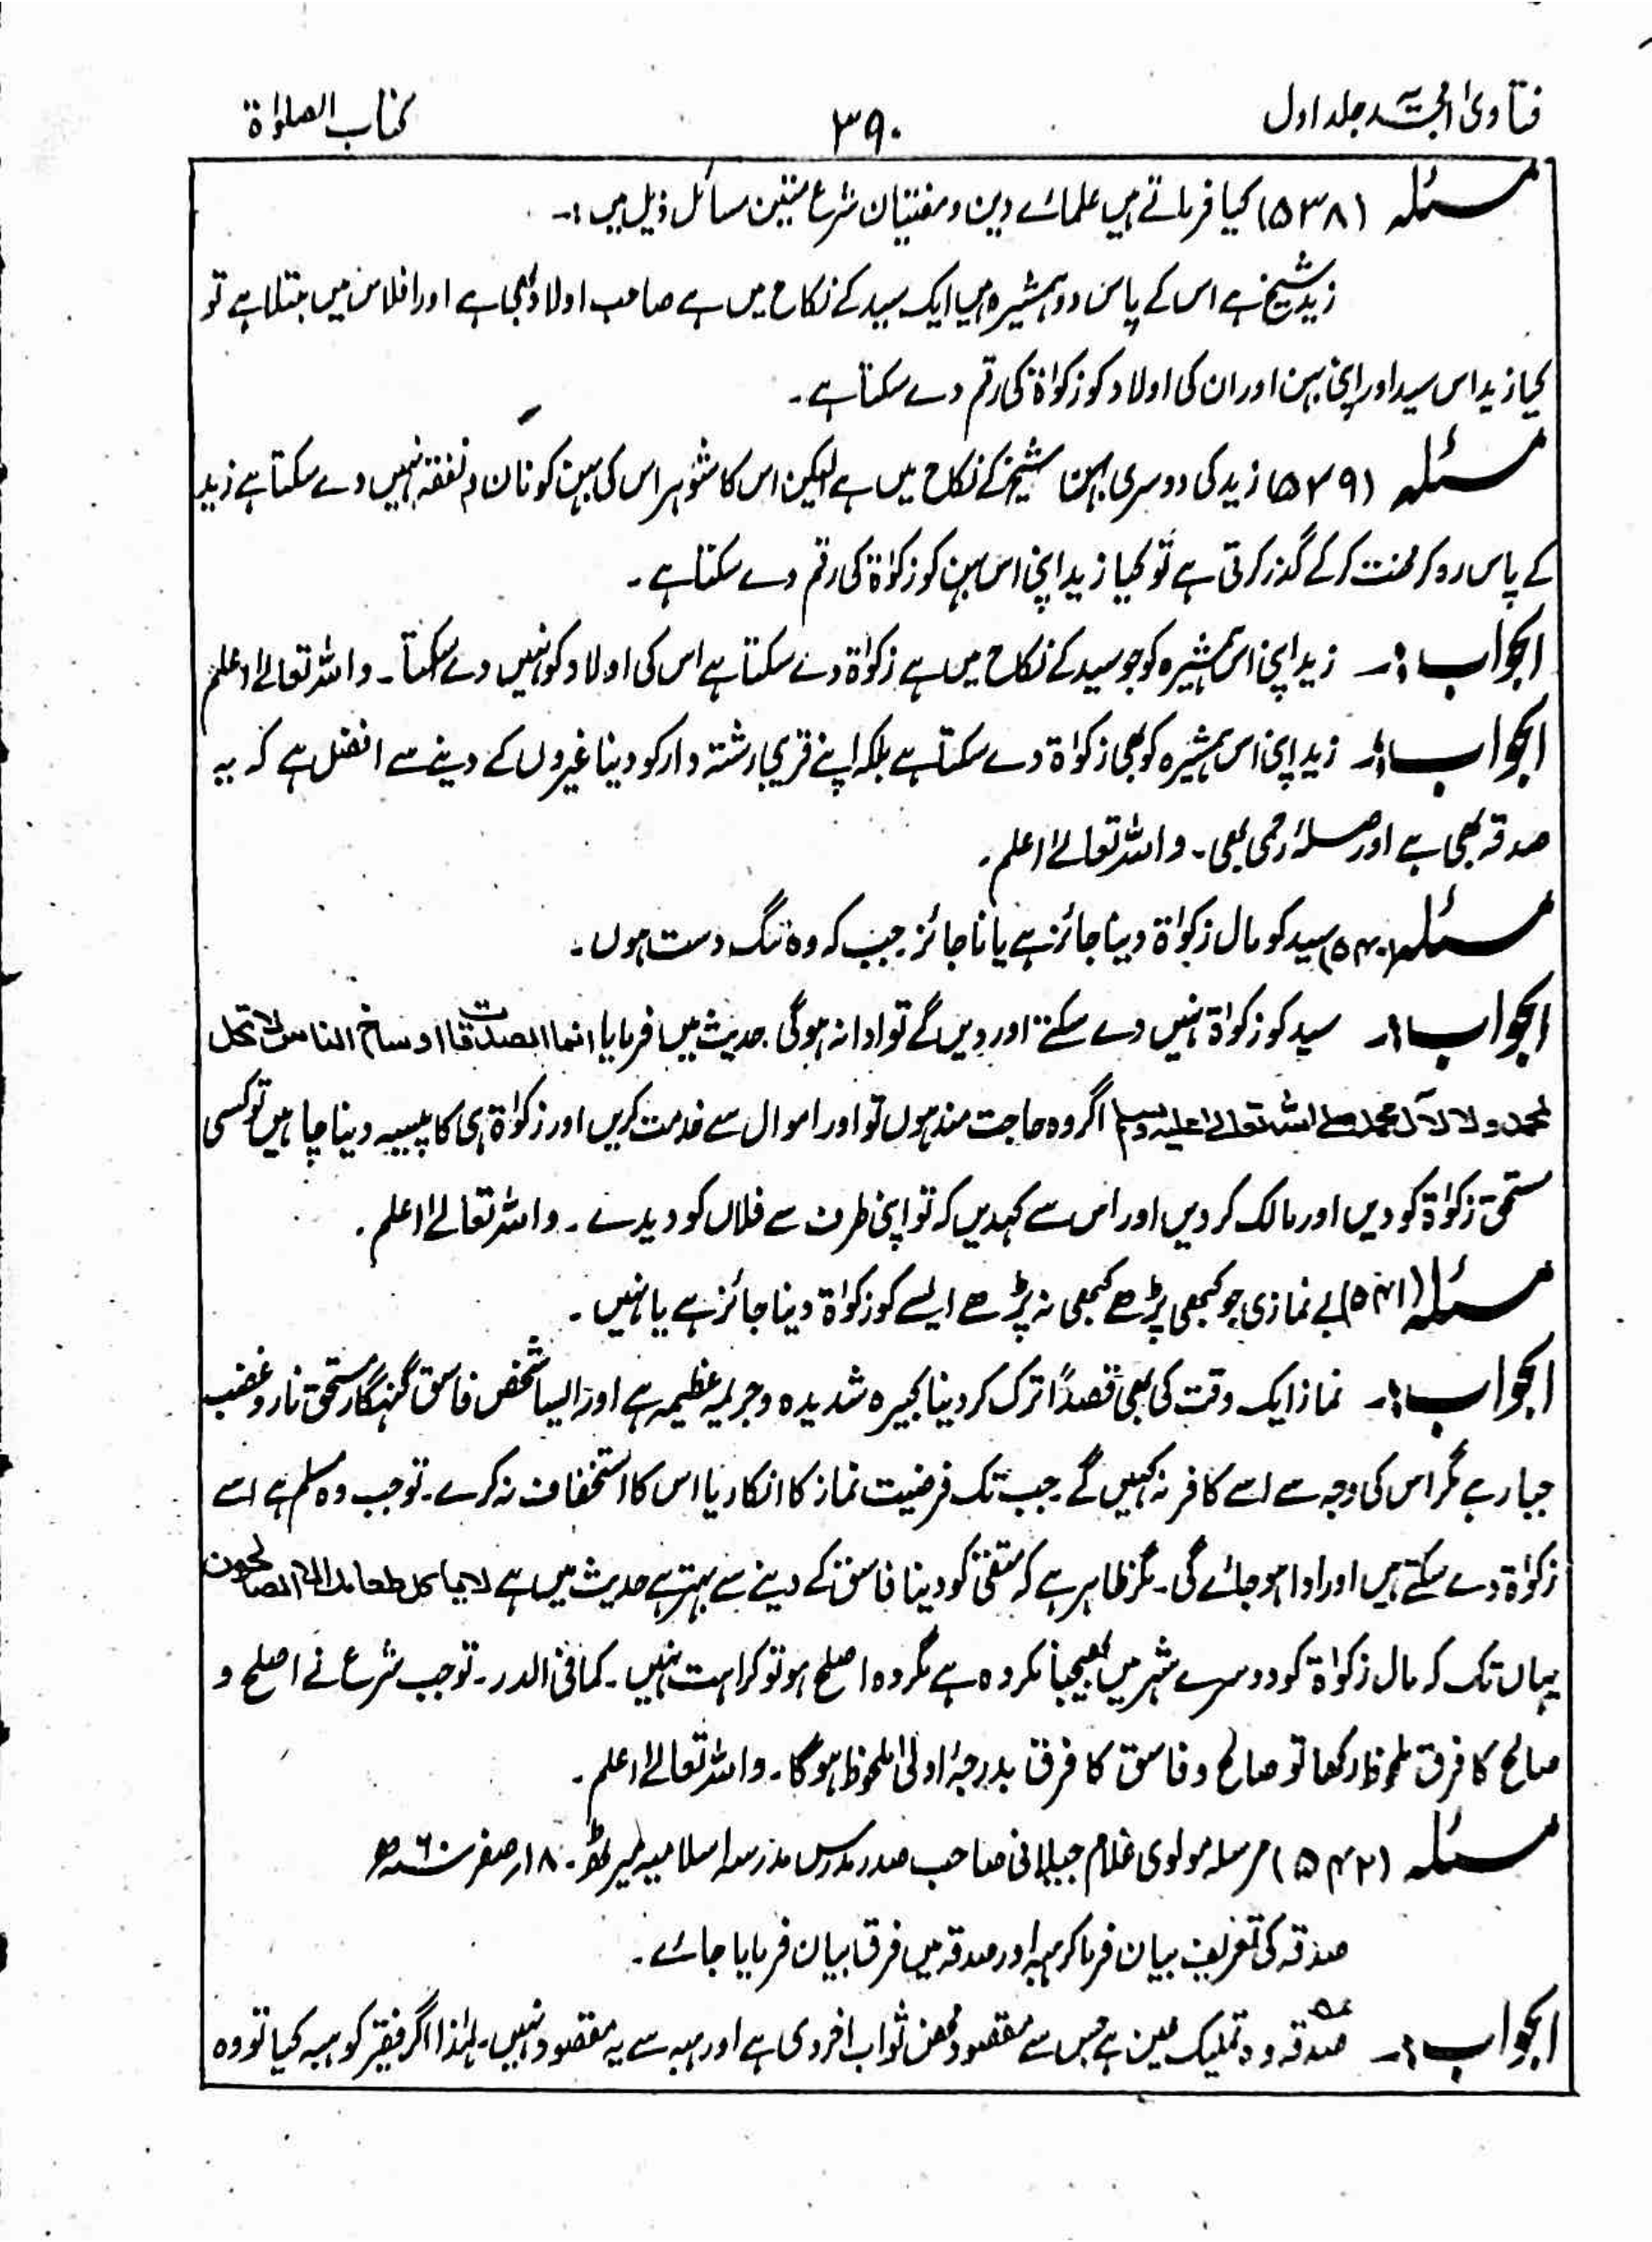 فتاویٰ امجدیہ جلد اول
۳۹۰
کتاب الصلوٰۃ
مسئلہ (۵۳۸) کیا فرماتے ہیں علمائے دین و مفتیان شرع متین مسائل ذیل میں :۔
زید شیخ ہے اس کے پاس دو ہمشیرہ ہیں ایک سید کے نکاح میں ہے صاحب اولاد بھی ہے اور افلاس میں مبتلا ہے تو
کیا زید اس سید اور اپنی بہن اور ان کی اولاد کو زکوٰۃ کی رقم دے سکتا ہے۔
مسئلہ (۵۳۹) زید کی دوسری بہن شیخ کے نکاح میں ہے لیکن اس کا شوہر اس کی بہن کو نان و نفقہ نہیں دے سکتا ہے زید
کے پاس رہ کر محنت کر کے گذر کرتی ہے تو کیا زید اپنی اس بہن کو زکوٰۃ کی رقم دے سکتا ہے۔
الجواب :۔ زید اپنی اس ہمشیرہ کو جو سید کے نکاح میں ہے زکوٰۃ دے سکتا ہے اس کی اولاد کو نہیں دے سکتا۔ واللہ تعالےٰ اعلم
الجواب :۔ زید اپنی اس ہمشیرہ کو بھی زکوٰۃ دے سکتا ہے بلکہ اپنے قریبی رشتہ دار کو دینا غیروں کے دینے سے افضل ہے کہ یہ
صدقہ بھی ہے اور صلۂ رحمی بھی۔ واللہ تعالےٰ اعلم۔
مسئلہ (۵۴۰) سید کو مال زکوٰۃ دینا جائز ہے یا ناجائز جب کہ وہ تنگ دست ہوں۔
الجواب :۔ سید کو زکوٰۃ نہیں دے سکتے اور دیں گے تو ادا نہ ہوگی حدیث میں فرمایا انما الصدقات اوساخ الناس لا تحل
لمحمد ولا لآل محمد صلے اللہ تعالےٰ علیہ وسلم اگر وہ حاجت مند ہوں تو اور اموال سے خدمت کریں اور زکوٰۃ ہی کا پیسہ دینا چاہیں تو کسی
مستحق زکوٰۃ کو دیں اور مالک کر دیں اور اس سے کہدیں کہ تو اپنی طرف سے فلاں کو دیدے۔ واللہ تعالےٰ اعلم۔
مسئلہ (۵۴۱) بے نمازی جو کبھی پڑھے کبھی نہ پڑھے ایسے کو زکوٰۃ دینا جائز ہے یا نہیں۔
الجواب :۔ نماز ایک وقت کی بھی قصداً ترک کر دینا کبیرہ شدیدہ و جریمہ عظیمہ ہے اور ایسا شخص فاسق گنہگار مستحق نار و غضب
جبار ہے مگر اس کی وجہ سے اسے کافر نہ کہیں گے جب تک فرضیت نماز کا انکار یا اس کا استخفاف نہ کرے۔ تو جب وہ مسلم ہے اسے
زکوٰۃ دے سکتے ہیں اور ادا ہو جائے گی۔ مگر ظاہر ہے کہ متقی کو دینا فاسق کے دینے سے بہتر ہے حدیث میں ہے لا یاکل طعامک الا الصالحون
یہاں تک کہ مال زکوٰۃ کو دوسرے شہر میں بھیجنا مکروہ ہے مگر وہ اصلح ہو تو کراہت نہیں۔ کما فی الدر۔ تو جب شرع نے اصلح و
صالح کا فرق ملحوظ رکھا تو صالح و فاسق کا فرق بدرجۂ اولیٰ ملحوظ ہوگا۔ واللہ تعالےٰ اعلم۔
مسئلہ (۵۴۲) مرسلہ مولوی غلام جیلانی صاحب صدر مدرس مدرسہ اسلامیہ میرٹھ۔ ۱۸؍ صفر ۶۰ھ
صدقہ کی تعریف بیان فرما کر ہبہ اور صدقہ میں فرق بیان فرمایا جائے۔
الجواب :۔ صدقہ وہ تملیک عین ہے جس سے مقصود محض ثواب اخروی ہے اور ہبہ سے یہ مقصود نہیں۔ لہٰذا اگر فقیر کو ہبہ کیا تو وہ